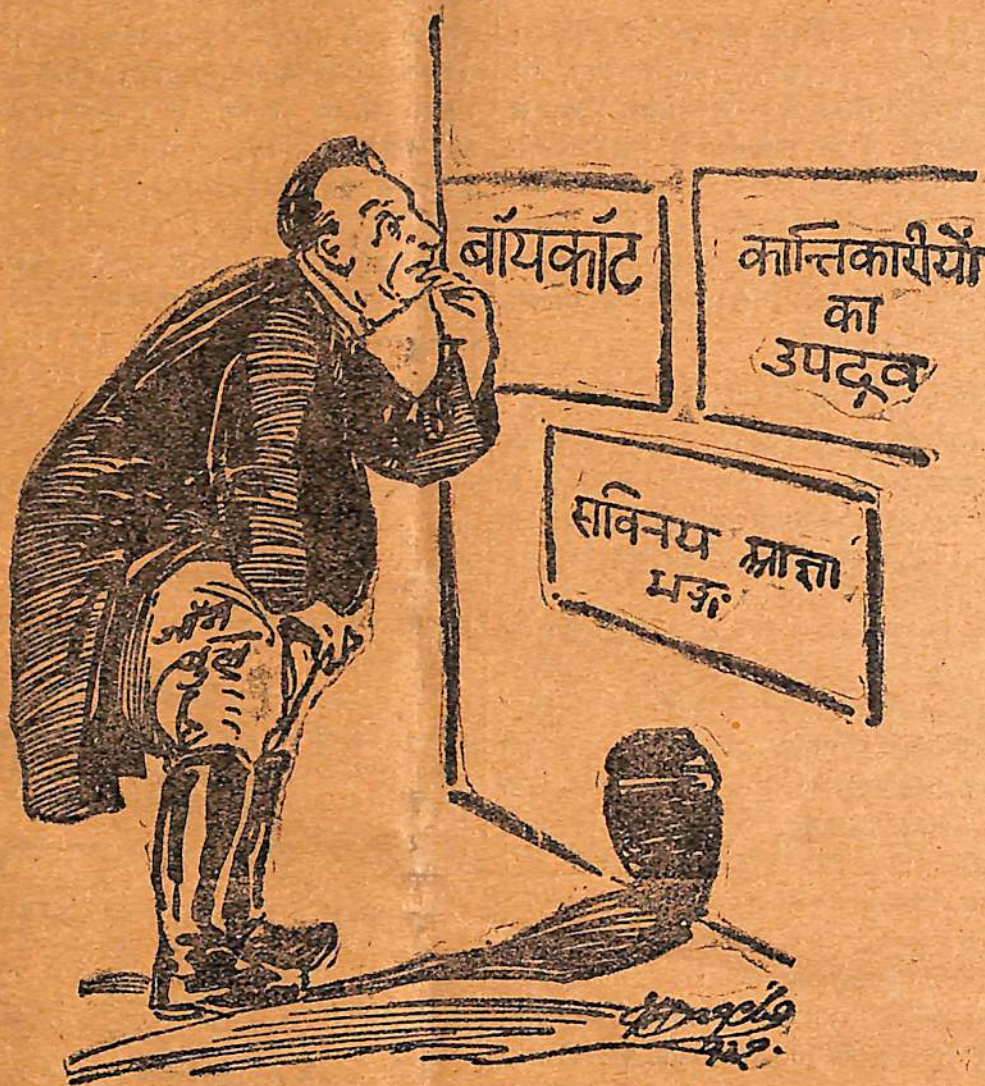 बॉयकॉट
कान्तिकारीयों
का
उपद्रव
सविनय आज्ञा
भङ्ग